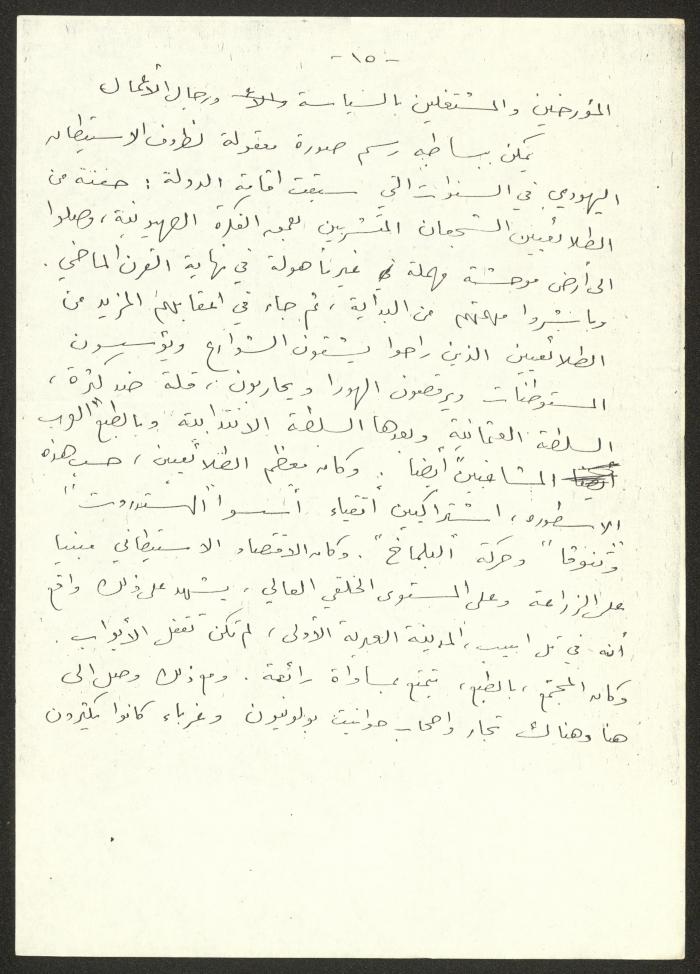 -١٥-
المؤرخين والمشتغلين بالسياسة ورجال الأعمال
يمكن ببساطة رسم صورة معقولة لظروف الاستيطان
اليهودي في السنوات التي سبقت اقامة الدولة : حفنة من
الطلائعيين الشجعان المتشربين بعمق الفكرة الصهيونية، وصلوا
الى أرض موحشة مهملة غير مأهولة في نهاية القرن الماضي .
وباشروا مهمتهم من البداية ، ثم جاء في اعقابهم المزيد من
الطلائعيين الذين راحوا يشقون الشوارع ويؤسسون
المستوطنات ويرقصون الهورا ويحاربون ، قلة ضد كثرة ،
السلطة العثمانية وبعدها السلطة الانتدابية وبالطبع "العرب
المشاغبين" أيضا . وكان معظم الطلائعيين ، حسب هذه
الاسطورة ، اشتراكيين أتقياء أسسوا "الهستدروت"
و"تنوفا" وحركة "البلماخ" . وكان الاقتصاد الاستيطاني مبنيا
على الزراعة وعلى المستوى الخلقي العالي ، يشهد على ذلك واقع
أنه في تل ابيب ، المدينة العبرية الأولى ، لم تكن تقفل الأبواب .
وكان المجتمع ، بالطبع ، يتمتع بمساواة رائعة . ومع ذلك وصل الى
هنا وهناك تجار واصحاب حوانيت بولونيون وغرباء كانوا يكثرون